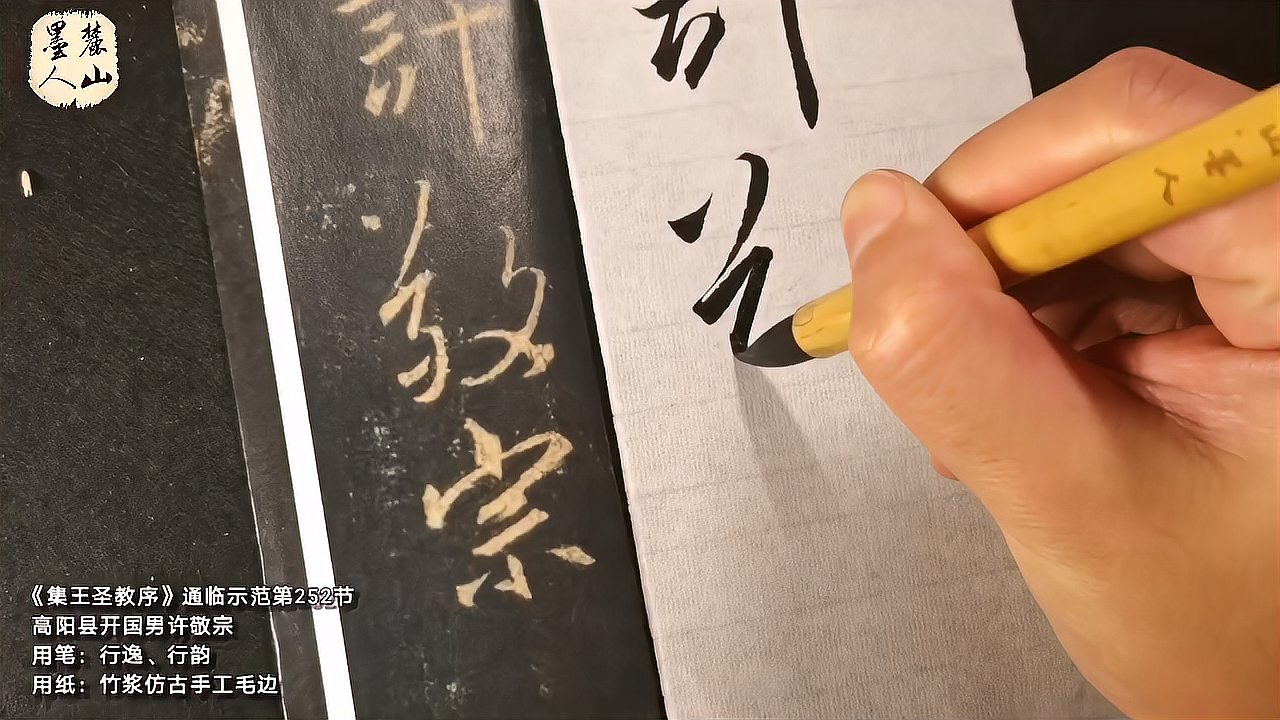 麓山
墨人
許
敬
宗
《集王圣教序》通临示范第252节
高阳县开国男许敬宗
用笔：行逸、行韵
用纸：竹浆仿古手工毛边